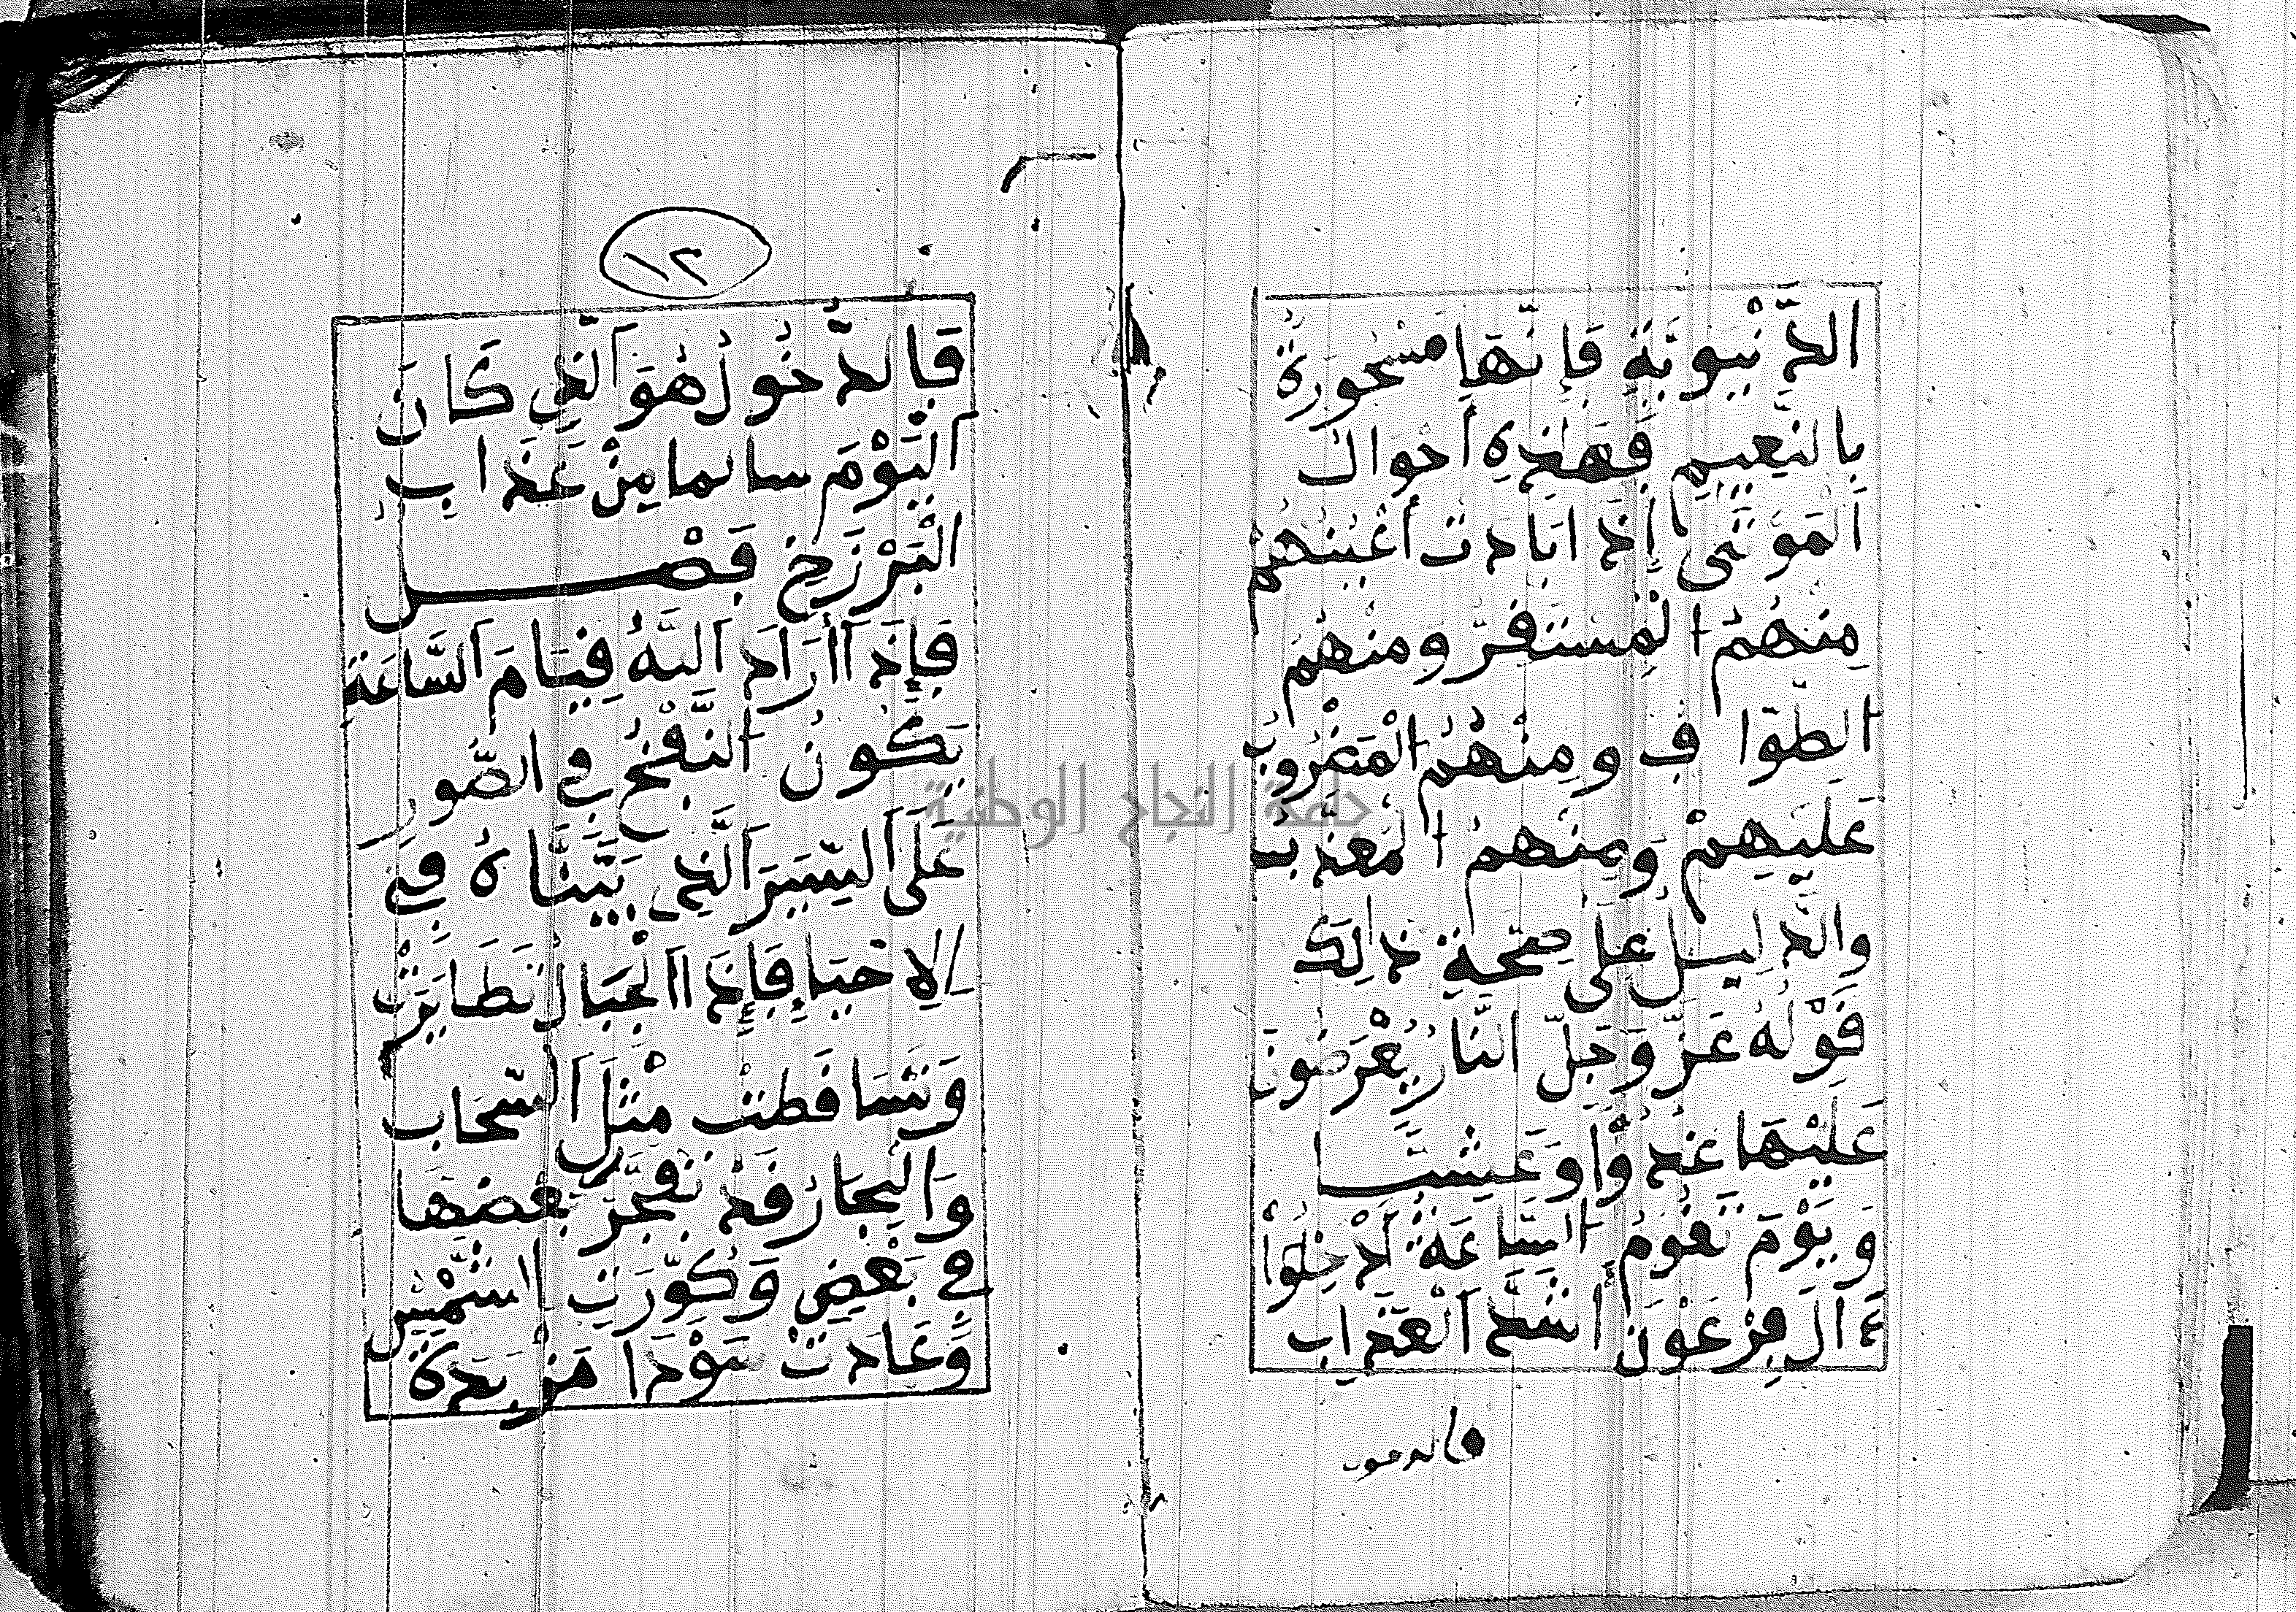 الدّنْيوِيَّةِ فَإنّهَا مسْحُورَةٌ
بِالنَعِيمِ فَهَذِهِ أحْوَالُ
المَوْتَى إِذَا بَادَتْ أعْيُنُهُمْ
مِنهُمُ الْمُسْتَقِرّ ومنهُمْ
الطَّوّافُ ومِنْهُمُ الْمَضْرُوبُ
عَلَيْهِمْ ومِنهُمُ المُعَذّبُ
والدّلِيل على صِحّةِ ذالِكَ
قَوْلهُ عَزّ وَجَلّ النّارُ يُعْرَضُونَ
عَلَيْهَا غدُوّاً وَعَشِيّا
وَيَوْمَ تَقُومُ السَّاعَةُ أَدْخِلُوا
ءَالَ فِرْعَوْنَ أشَدَّ العَذَابِ
فالدخول
١٢
فَالدُّخُولُ هُوَ الّذِي كَانَ
الْيَوْمَ سالما مِنْ عَذَابِ
الْبَرْزَخِ فَصْل
فَإِذَا أَرَادَ اللَّهُ قِيَامَ السَّاعَةِ
يَكُونُ النَّفْخُ فِي الصُّور
عَلَى السِّيَرِ الّذِي بَيَّنَّاهُ فِي
الاِحْيَا فَإِذَا الْجِبَالُ تَطَايَرَتْ
وَتَسَاقَطَتْ مِثْلَ السّحَاب
وَالبِحَارُ قَدْ تَفَجّرَ بَعْضهَا
فِي بَعْضٍ وَكُوّرَتِ الشّمْسُ
وَعَادَتْ سَوْدَا مَزْبَدَة
جامعة النجاح الوطنية